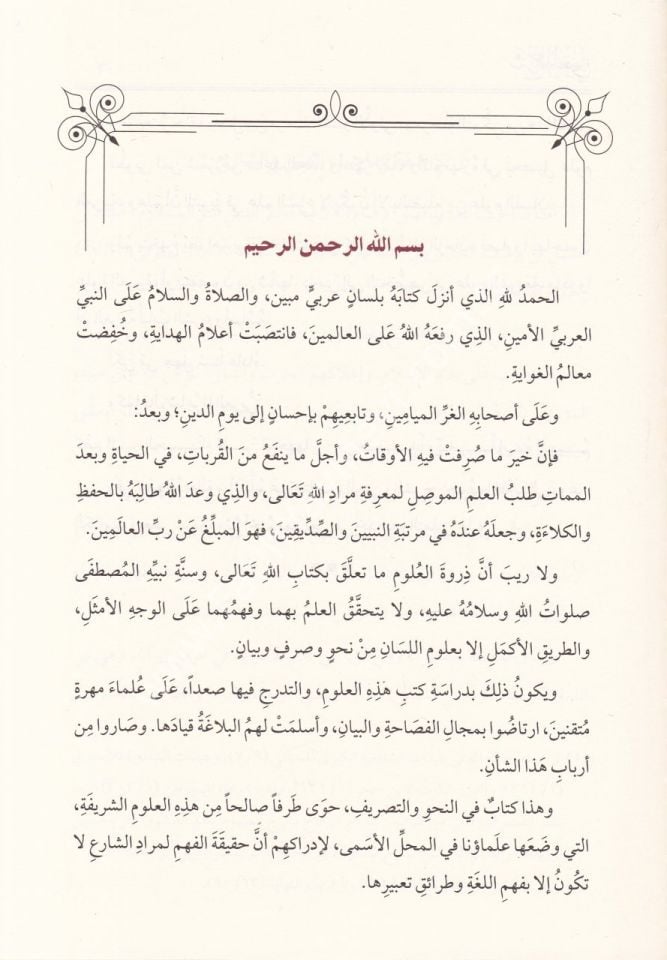 بسم الله الرحمن الرحيم
الحمدُ للهِ الذي أنزلَ كتابَهُ بلسانٍ عربيٍّ مبين، والصلاةُ والسلامُ عَلَى النبيِّ
العربيِّ الأمينِ، الذِي رفعَهُ اللهُ عَلَى العالمينَ، فانتصَبَتْ أعلامُ الهدايةِ، وخُفِضتْ
معالمُ الغوايةِ.
وعَلَى أصحابِهِ الغرِّ الميامِينِ، وتابعِيهِمْ بإحسانٍ إلى يومِ الدينِ؛ وبعدُ:
فإنَّ خيرَ ما صُرِفتْ فيهِ الأوقاتُ، وأجلَّ ما ينفَعُ منَ القُرباتِ، في الحياةِ وبعدَ
المماتِ طلبُ العلمِ الموصِلِ لمعرفةِ مرادِ اللهِ تَعالَى، والذِي وعدَ اللهُ طالِبَهُ بالحفظِ
والكلاءَةِ، وجعلَهُ عندَهُ في مرتبَةِ النبيينَ والصِّدِّيقِينَ، فهوَ المبلِّغُ عَنْ ربِّ العالَمِينَ.
ولا ريبَ أنَّ ذِروةَ العُلومِ ما تعلَّقَ بكتابِ اللهِ تَعالَى، وسنَّةِ نبيِّهِ المُصطفَى
صلواتُ اللهِ وسلامُهُ عليهِ، ولا يتحقَّقُ العلمُ بهما وفهمُهُما عَلَى الوجهِ الأمثَلِ،
والطريقِ الأكمَلِ إلا بعلومِ اللسَانِ مِنْ نحوٍ وصرفٍ وبيانٍ.
ويكونُ ذلِكَ بدراسَةِ كتبِ هَذِهِ العلومِ، والتدرجِ فيها صعداً، عَلَى عُلماءَ مهرةٍ
مُتقنينَ، ارتاضُوا بمجالِ الفصَاحةِ والبيانِ، وأسلمَتْ لهمُ البلاغَةُ قيادَها. وصَاروا مِن
أربابِ هَذا الشأنِ.
وهذا كتابٌ في النحوِ والتصريفِ، حوَى طَرفاً صالحاً مِن هذِهِ العلومِ الشريفَةِ،
التي وضَعَها علَماؤنا في المحلِّ الأسَمى، لإدراكِهِمْ أنَّ حقيقَةَ الفهمِ لمرادِ الشارعِ لا
تكونُ إلا بفهمِ اللغَةِ وطرائقِ تعبيرِها.